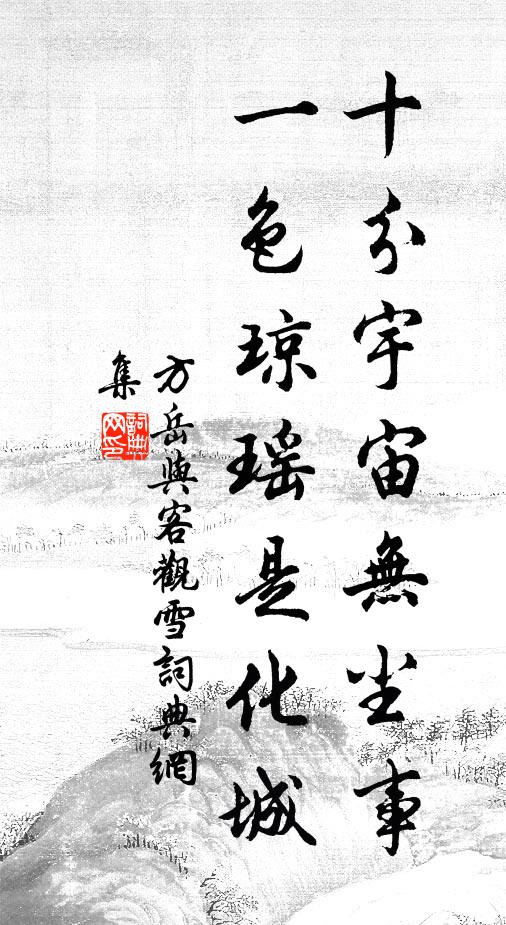 十分宇宙無尘事
一色琼瑶是化城
方岳與客觀雪詞典網
集
詞典
网印